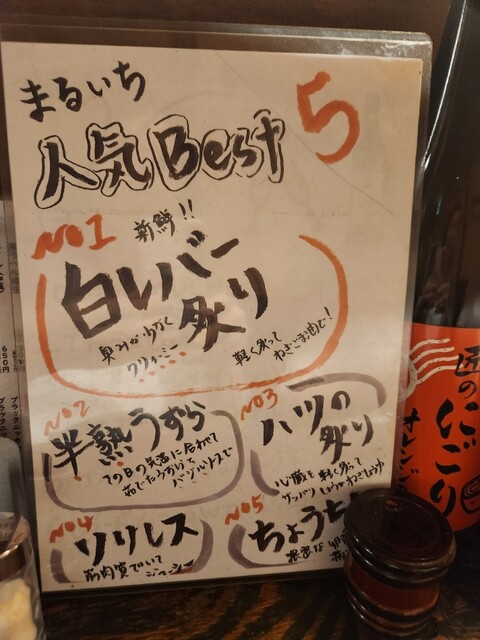 まるいち
人気Best 5
NO1 新鮮!!
白レバー
炙り
臭みが少なく
クリィーミー
軽く炙って
ねぎごま油で!
NO2
半熟うずら
その日の気温に合わせて
茹でたうずらを
NO3
ハツの
炙り
心臓を軽く炙って
サッパリしょうがねぎしょうゆ
NO4
ソリレス
筋肉質でいて
ジューシー
NO5
ちょうち
濃厚な
650円
匠の
にごり
オレンジ